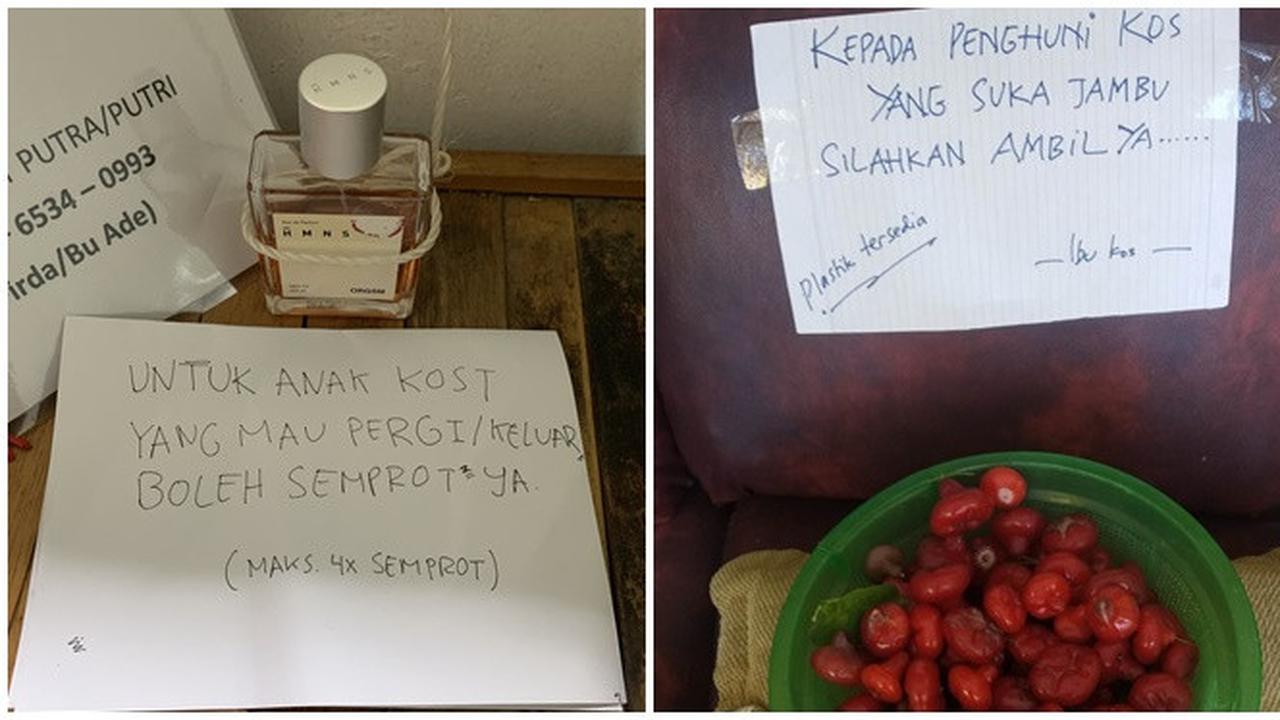 PUTRA/PUTRI
6534 – 0993
irda/Bu Ade)
R M N S
H M N S
ORGSM
UNTUK ANAK KOST
YANG MAU PERGI/KELUAR,
BOLEH SEMPROT² YA.
(MAKS. 4x SEMPROT)
KEPADA PENGHUNI KOS
YANG SUKA JAMBU
SILAHKAN AMBIL YA......
Plastik tersedia
— Ibu kos —